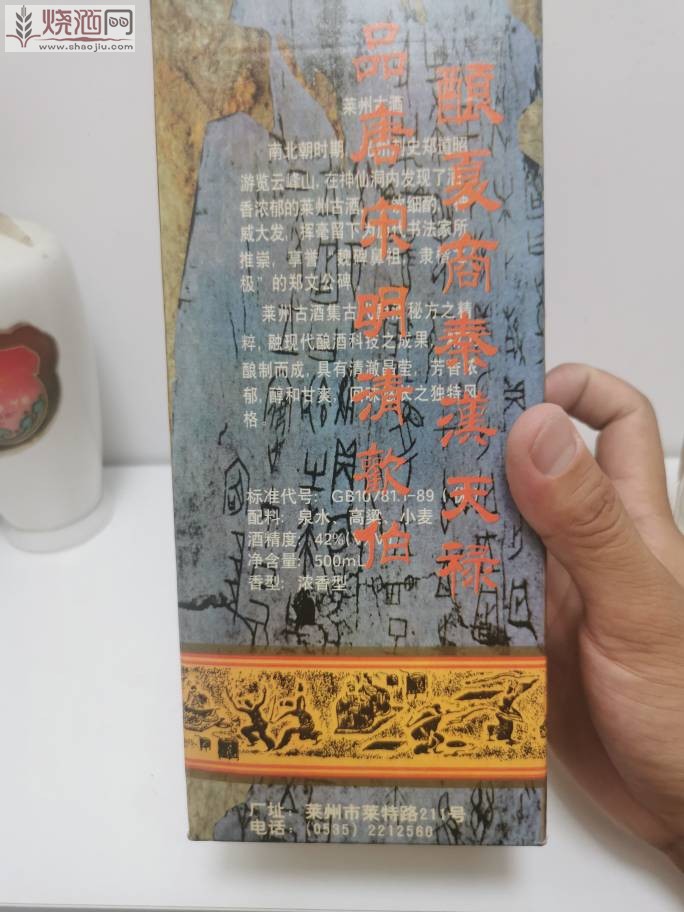 烧酒网
www.shaojiu.com
頤夏商秦漢天禄
品唐宋明清歡伯
莱州古酒
南北朝时期，刺史郑道昭
游览云峰山，在神仙洞内发现了酒
香浓郁的莱州古酒，细酌
威大发，挥毫留下为书法家所
推崇，享誉"魏碑鼻祖，隶楷
极"的郑文公碑。
莱州古酒集古代秘方之精
粹，融现代酿酒科技之成果，
酿制而成，具有清澈晶莹，芳香浓
郁，醇和甘爽，回味悠长之独特风
格。
标准代号：GB10781.1-89（优
配料：泉水、高粱、小麦
酒精度：42%(V/V
净含量：500mL
香型：浓香型
厂址：莱州市莱特路211号
电话：(0535) 2212560